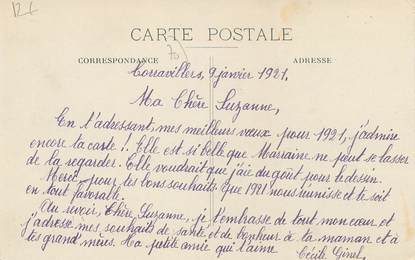 12f
CARTE POSTALE
70
CORRESPONDANCE
ADRESSE
Corravillers, 9 janvier 1921.
Ma Chère Suzanne,
En t'adressant mes meilleurs vœux pour 1921, j'admire
encore ta carte! Elle est si belle que Marraine ne peut se lasser
de la regarder. Elle voudrait que j'aie du goût pour le dessin.
Merci pour tes bons souhaits. Que 1921 nous réunisse et te soit
en tout favorable.
Au revoir, Chère Suzanne, je t'embrasse de tout mon cœur et
j'adresse mes souhaits de santé et de bonheur à ta maman et à
tes grand'mères. Ta petite amie qui t'aime
Cécile